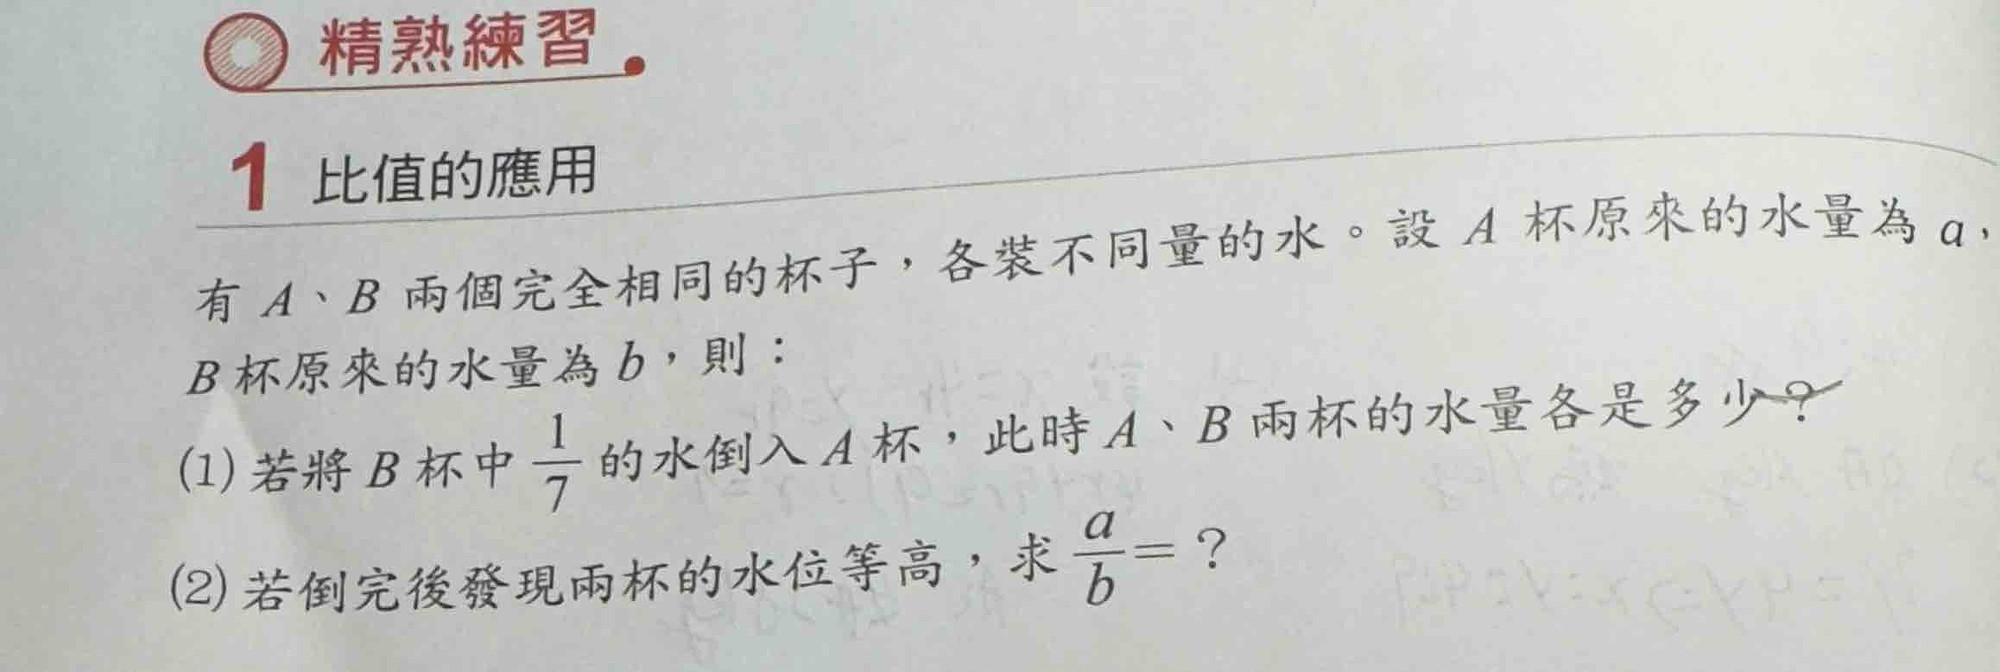 精熟練習
1 比值的應用
有 A、B 兩個完全相同的杯子，各裝不同量的水。設 A 杯原來的水量為 a，
B 杯原來的水量為 b，則：
(1) 若將 B 杯中 1/7 的水倒入 A 杯，此時 A、B 兩杯的水量各是多少？
(2) 若倒完後發現兩杯的水位等高，求 a/b = ？